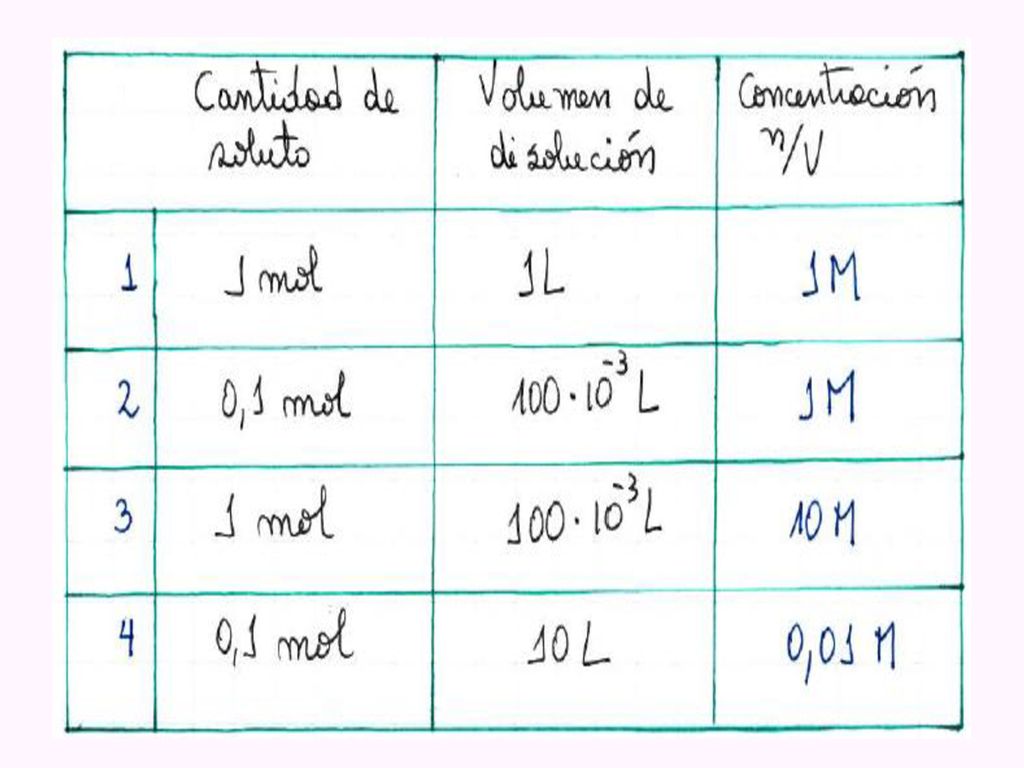 Cantidad de soluto
Volumen de disolución
Concentración n/V
1 1 mol 1L 1M
2 0,1 mol 100·10⁻³ L 1M
3 1 mol 100·10⁻³ L 10 M
4 0,1 mol 10 L 0,01 M